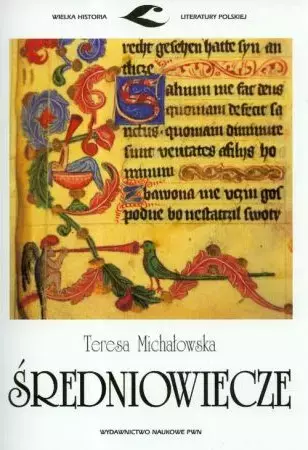 WIELKA HISTORIA LITERATURY POLSKIEJ
recht gesehen hatte syn an
tlicze
Saluum me fac deus
quoniam defecit sa
nctus · quoniam diminute
sunt veritates a filijs ho
minum
Zbawona me vczyn gos
podne bo nestatczil swøty
Teresa Michałowska
ŚREDNIOWIECZE
WYDAWNICTWO NAUKOWE PWN